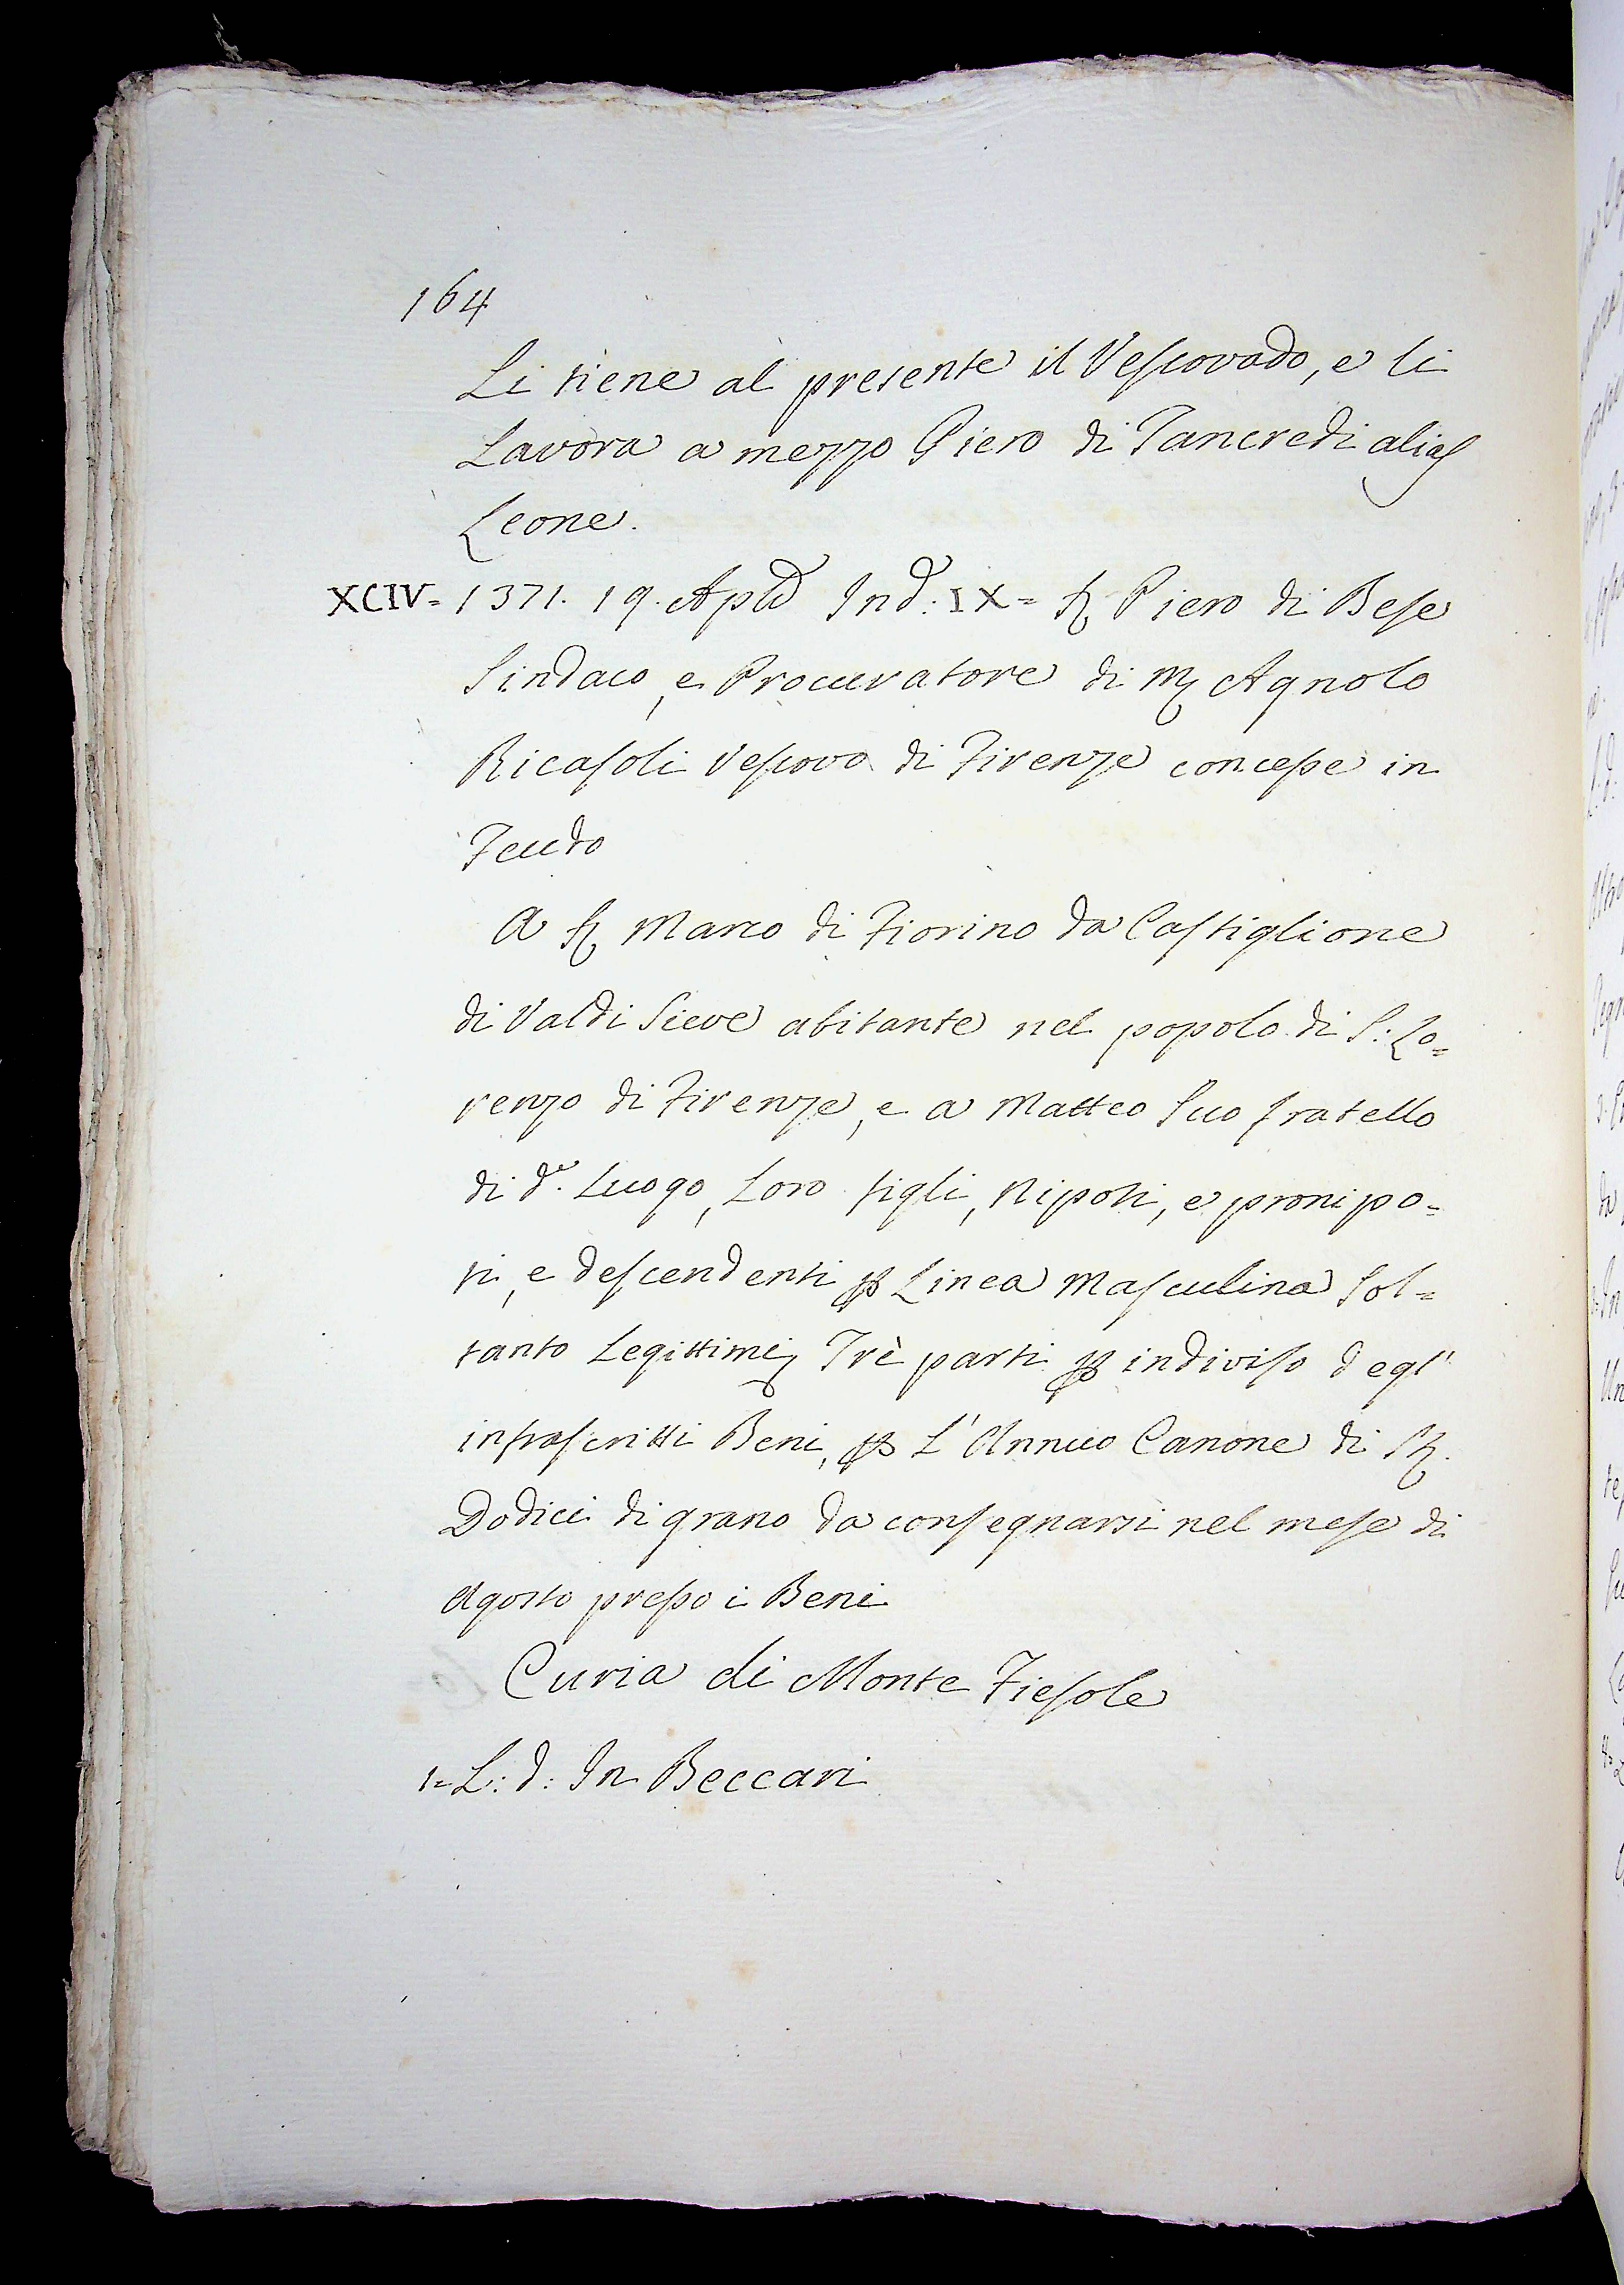 164
Li tiene al presente il Vescovado, e li
Lavora a mezzo Piero di Tancredi alias
Leone.
XCIV= 1371. 19. Aple Ind: IX= Ser Piero di Bese
Sindaco, e Procuratore di M. Agnolo
Ricasoli Vescovo di Firenze concesse in
Feudo
A Ser Marco di Fiorino da Castiglione
di Val di Sieve abitante nel popolo di S: Lo=
renzo di Firenze, e a Matteo Suo fratello
di do. Luogo, Loro figli, Nipoti, e pronipo=
ti, e descendenti p Linea Masculina Sol=
tanto Legittimi, Trè parti p indiviso degl'
infrascritti Beni, p L'Annuo Canone di
Dodici di grano da consegnarsi nel mese di
Agosto presso i Beni
Curia di Monte Fiesole
1= L: d: In Beccari